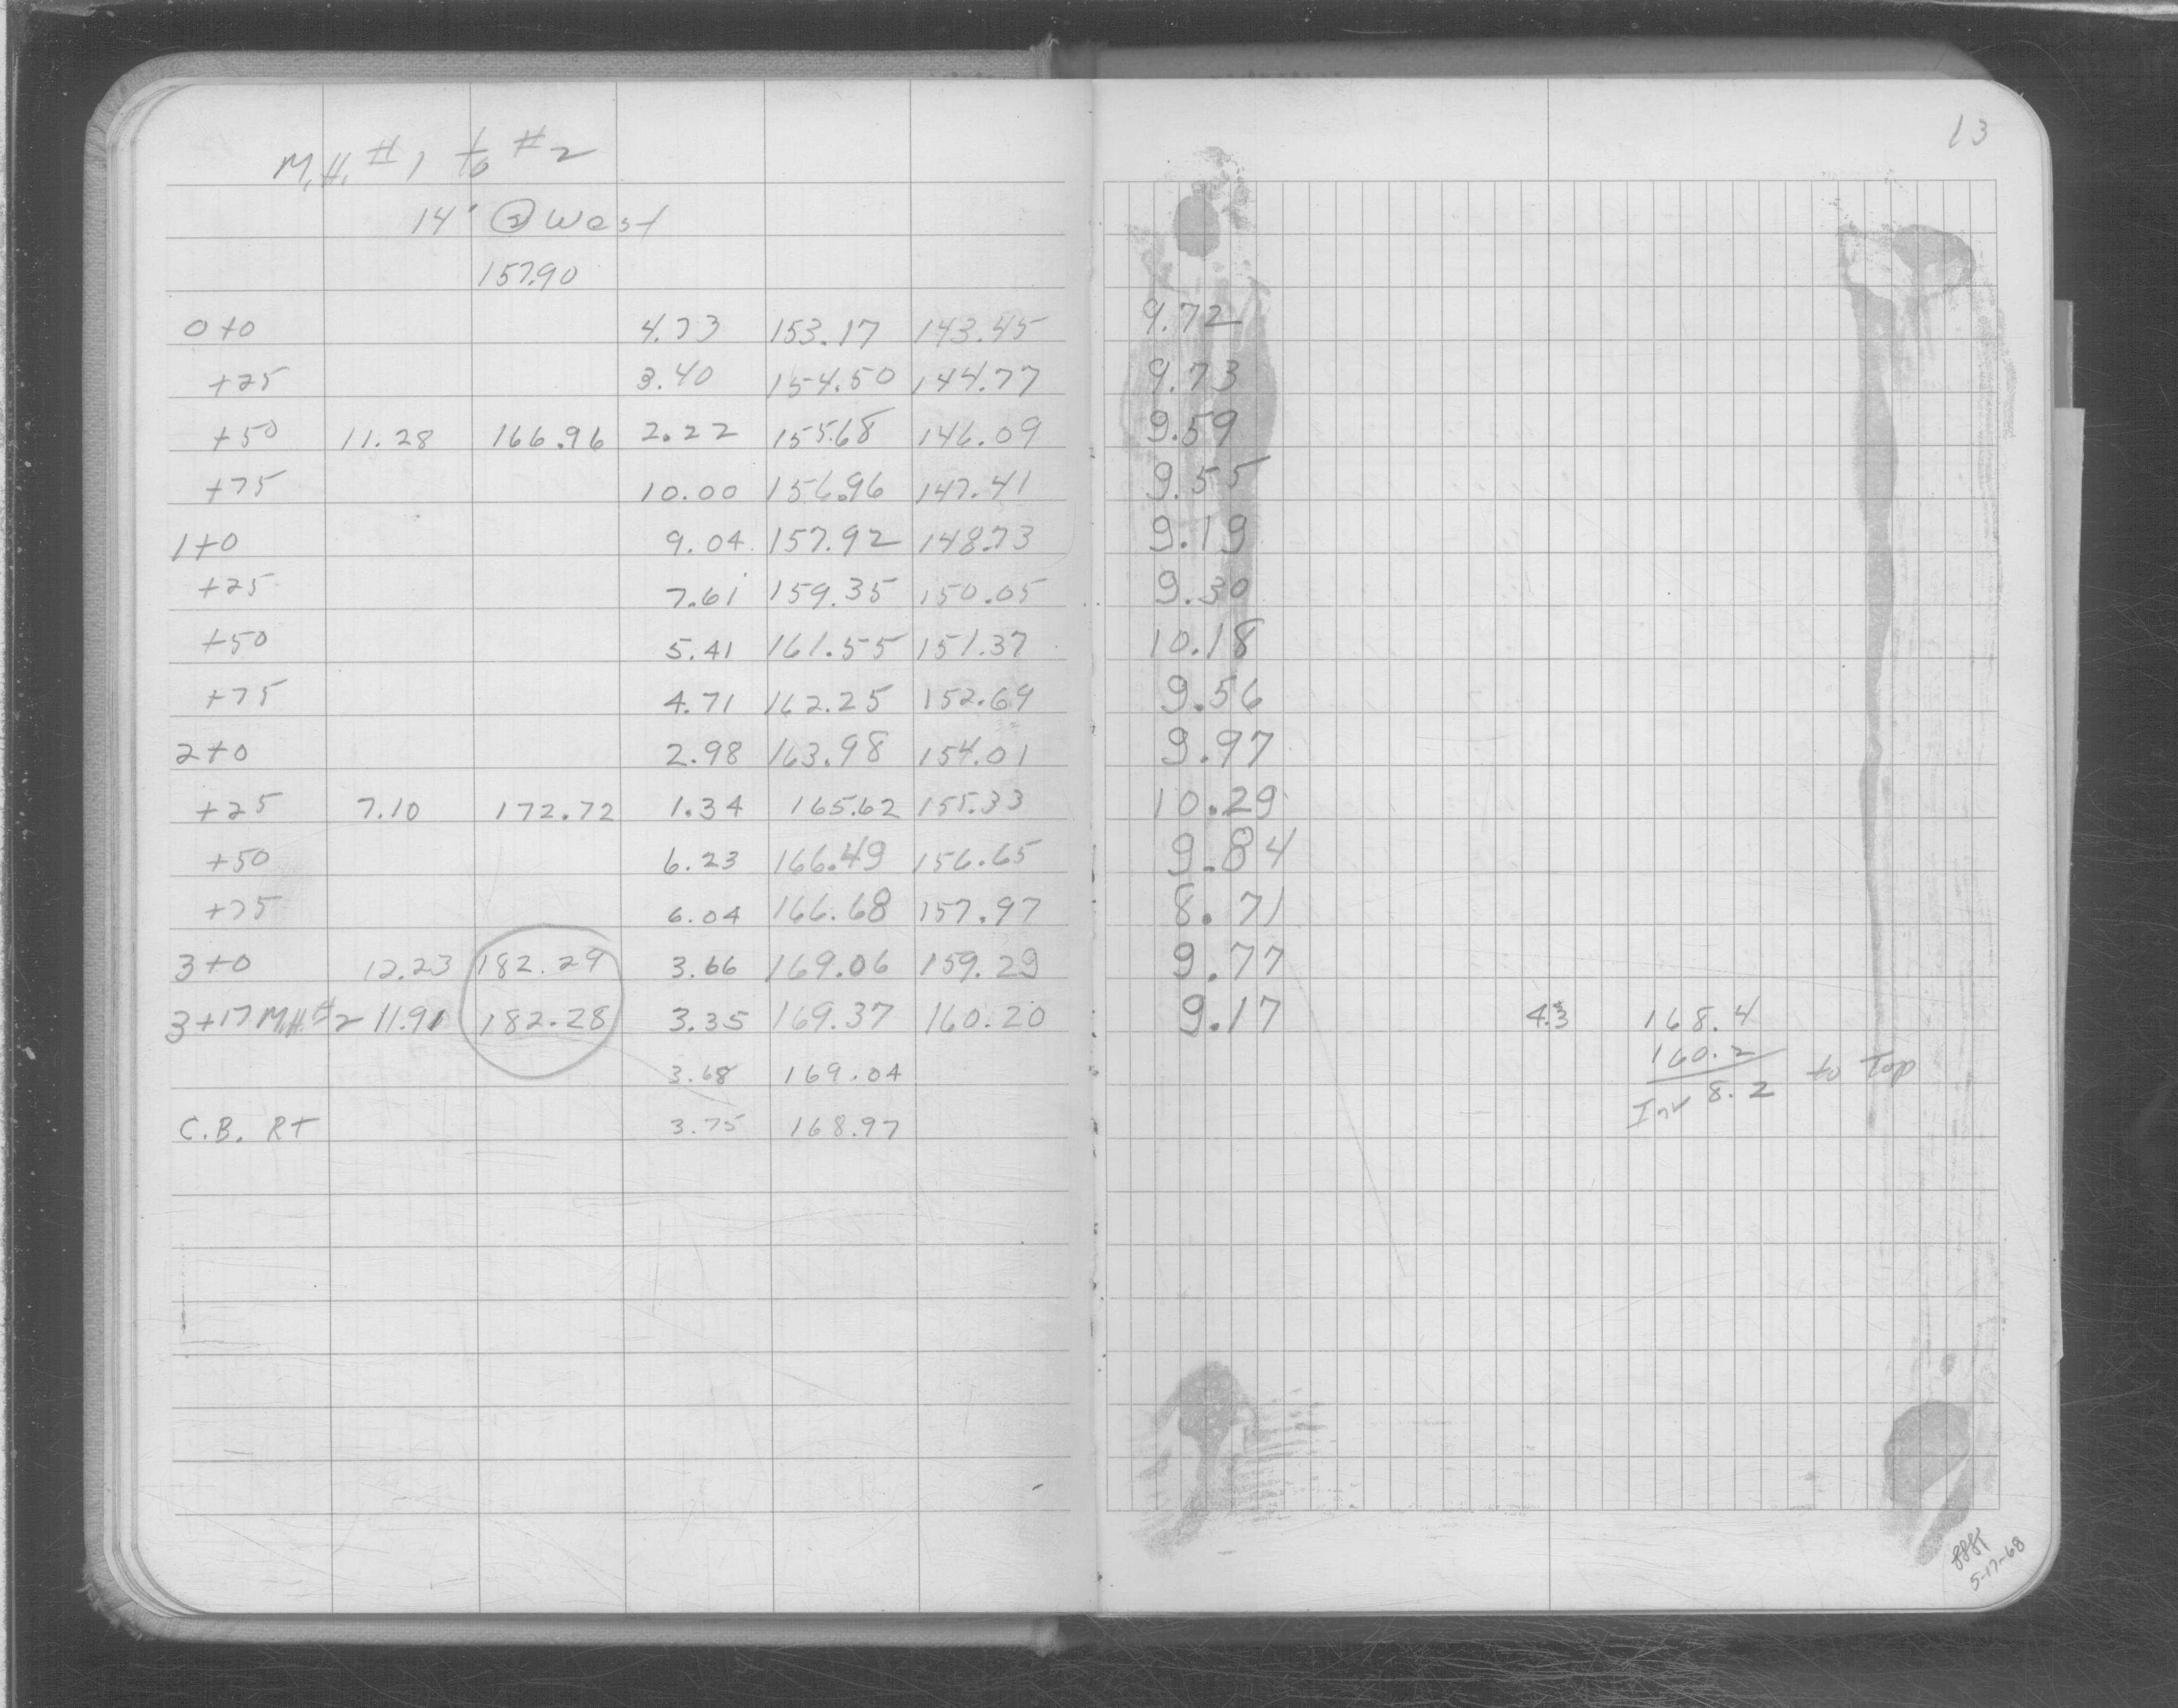 13
M.H. #1 to #2
14' @ West
157.90
0+0 4.73 153.17 143.45 9.72
+25 3.40 154.50 144.77 9.73
+50 11.28 166.96 2.22 155.68 146.09 9.59
+75 10.00 156.96 147.41 9.55
1+0 9.04 157.92 148.73 9.19
+25 7.61 159.35 150.05 9.30
+50 5.41 161.55 151.37 10.18
+75 4.71 162.25 152.69 9.56
2+0 2.98 163.98 154.01 9.97
+25 7.10 172.72 1.34 165.62 155.33 10.29
+50 6.23 166.49 156.65 9.84
+75 6.04 166.68 157.97 8.71
3+0 12.23 182.29 3.66 169.06 159.29 9.77
3+17 MH#2 11.91 182.28 3.35 169.37 160.20 9.17 4.3 168.4
160.2
3.68 169.04
Inv 8.2 to Top
C.B. Rt 3.75 168.97
5-17-68